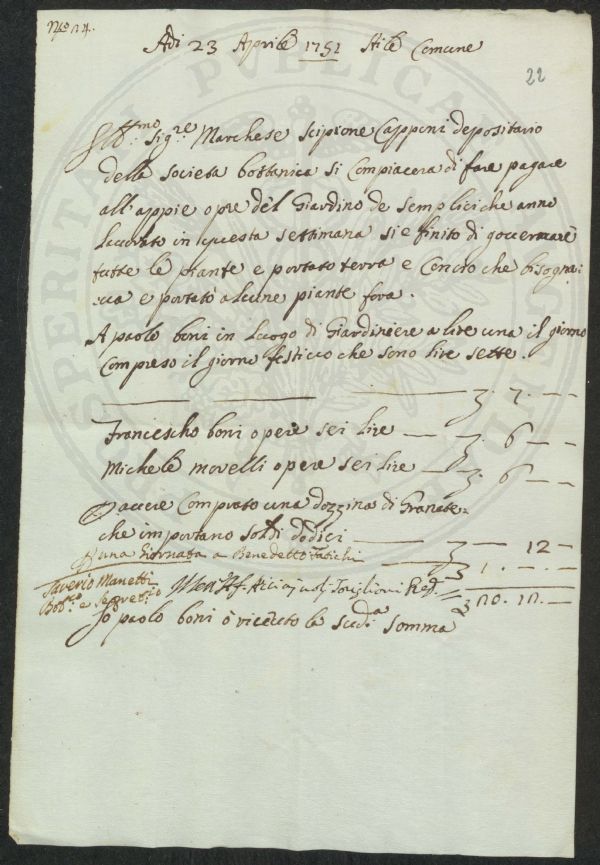 Nº 14.
Adi 23 Aprile 1751 Stile Comune
22
Sigre Marchese Scipione Capponi depositario
della Societa bottanica si Compiacera di fare pagare
all'appie opre del Giardino de Semplici che anno
lavorato in questa settimana si e finito di governare
tutte le piante e portato terra e Concio che bisogna:
va e portato alcune piante fora.
A paolo boni in luogo di Giardiniere a lire una il giorno
Compreso il giorno festivo che sono lire sette.
7. —
Francescho boni opere sei lire — 6 — —
Michele morelli opere sei lire — 6 — —
avere Comprato una dozzina di Granate
che importano soldi dodici — 12 —
P una Giornata a Benedetto Fatichi — 1. — —
Saverio Manetti
e Segretrio
Io paolo boni ò riceuto la sudª somma